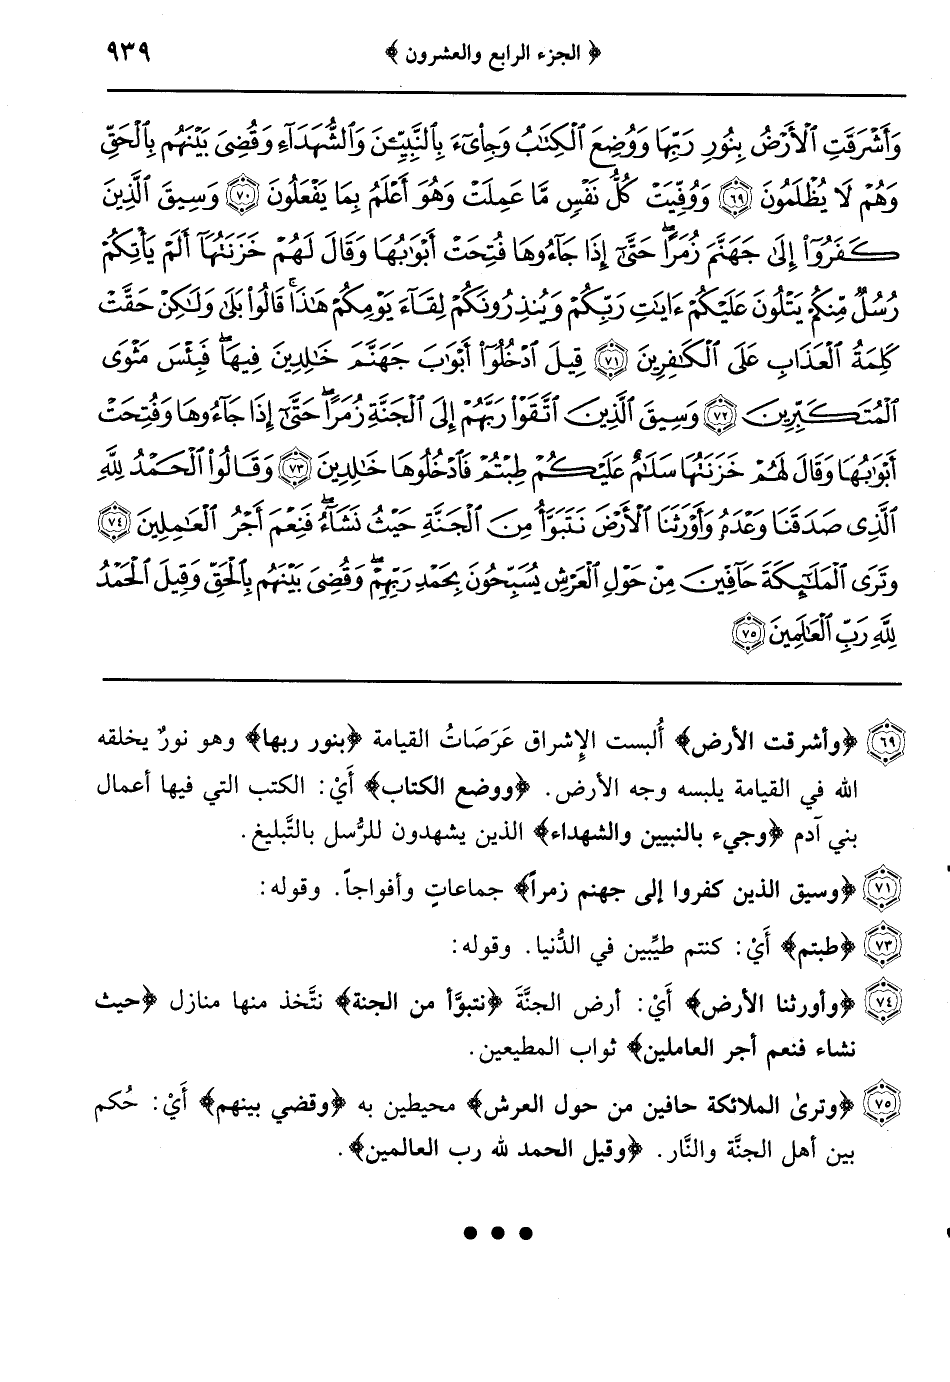 ﴿ الجزء الرابع والعشرون ﴾ ٩٣٩
وَأَشْرَقَتِ ٱلْأَرْضُ بِنُورِ رَبِّهَا وَوُضِعَ ٱلْكِتَٰبُ وَجِا۟ىٓءَ بِٱلنَّبِيِّـۧنَ وَٱلشُّهَدَآءِ وَقُضِىَ بَيْنَهُم بِٱلْحَقِّ
وَهُمْ لَا يُظْلَمُونَ ﴿٦٩﴾ وَوُفِّيَتْ كُلُّ نَفْسٍ مَّا عَمِلَتْ وَهُوَ أَعْلَمُ بِمَا يَفْعَلُونَ ﴿٧٠﴾ وَسِيقَ ٱلَّذِينَ
كَفَرُوٓا۟ إِلَىٰ جَهَنَّمَ زُمَرًا ۖ حَتَّىٰٓ إِذَا جَآءُوهَا فُتِحَتْ أَبْوَٰبُهَا وَقَالَ لَهُمْ خَزَنَتُهَآ أَلَمْ يَأْتِكُمْ
رُسُلٌ مِّنكُمْ يَتْلُونَ عَلَيْكُمْ ءَايَٰتِ رَبِّكُمْ وَيُنذِرُونَكُمْ لِقَآءَ يَوْمِكُمْ هَٰذَا ۚ قَالُوا۟ بَلَىٰ وَلَٰكِنْ حَقَّتْ
كَلِمَةُ ٱلْعَذَابِ عَلَى ٱلْكَٰفِرِينَ ﴿٧١﴾ قِيلَ ٱدْخُلُوٓا۟ أَبْوَٰبَ جَهَنَّمَ خَٰلِدِينَ فِيهَا ۖ فَبِئْسَ مَثْوَى
ٱلْمُتَكَبِّرِينَ ﴿٧٢﴾ وَسِيقَ ٱلَّذِينَ ٱتَّقَوْا۟ رَبَّهُمْ إِلَى ٱلْجَنَّةِ زُمَرًا ۖ حَتَّىٰٓ إِذَا جَآءُوهَا وَفُتِحَتْ
أَبْوَٰبُهَا وَقَالَ لَهُمْ خَزَنَتُهَا سَلَٰمٌ عَلَيْكُمْ طِبْتُمْ فَٱدْخُلُوهَا خَٰلِدِينَ ﴿٧٣﴾ وَقَالُوا۟ ٱلْحَمْدُ لِلَّهِ
ٱلَّذِى صَدَقَنَا وَعْدَهُۥ وَأَوْرَثَنَا ٱلْأَرْضَ نَتَبَوَّأُ مِنَ ٱلْجَنَّةِ حَيْثُ نَشَآءُ ۖ فَنِعْمَ أَجْرُ ٱلْعَٰمِلِينَ ﴿٧٤﴾
وَتَرَى ٱلْمَلَٰٓئِكَةَ حَآفِّينَ مِنْ حَوْلِ ٱلْعَرْشِ يُسَبِّحُونَ بِحَمْدِ رَبِّهِمْ ۖ وَقُضِىَ بَيْنَهُم بِٱلْحَقِّ وَقِيلَ ٱلْحَمْدُ
لِلَّهِ رَبِّ ٱلْعَٰلَمِينَ ﴿٧٥﴾
﴿٦٩﴾ ﴿وأشرقت الأرض﴾ أُلبست الإِشراق عَرَصَاتُ القيامة ﴿بنور ربها﴾ وهو نورٌ يخلقه
الله في القيامة يلبسه وجه الأرض. ﴿ووضع الكتاب﴾ أَيْ: الكتب التي فيها أعمال
بني آدم ﴿وجيء بالنبيين والشهداء﴾ الذين يشهدون للرُّسل بالتَّبليغ.
﴿٧١﴾ ﴿وسيق الذين كفروا إلى جهنم زمراً﴾ جماعاتٍ وأفواجاً. وقوله:
﴿٧٣﴾ ﴿طبتم﴾ أَيْ: كنتم طيِّبين في الدُّنيا. وقوله:
﴿٧٤﴾ ﴿وأورثنا الأرض﴾ أَيْ: أرض الجنَّة ﴿نتبوَّأ من الجنة﴾ نتَّخذ منها منازل ﴿حيث
نشاء فنعم أجر العاملين﴾ ثواب المطيعين.
﴿٧٥﴾ ﴿وترىٰ الملائكة حافين من حول العرش﴾ محيطين به ﴿وقضي بينهم﴾ أَيْ: حُكم
بين أهل الجنَّة والنَّار. ﴿وقيل الحمد لله رب العالمين﴾.